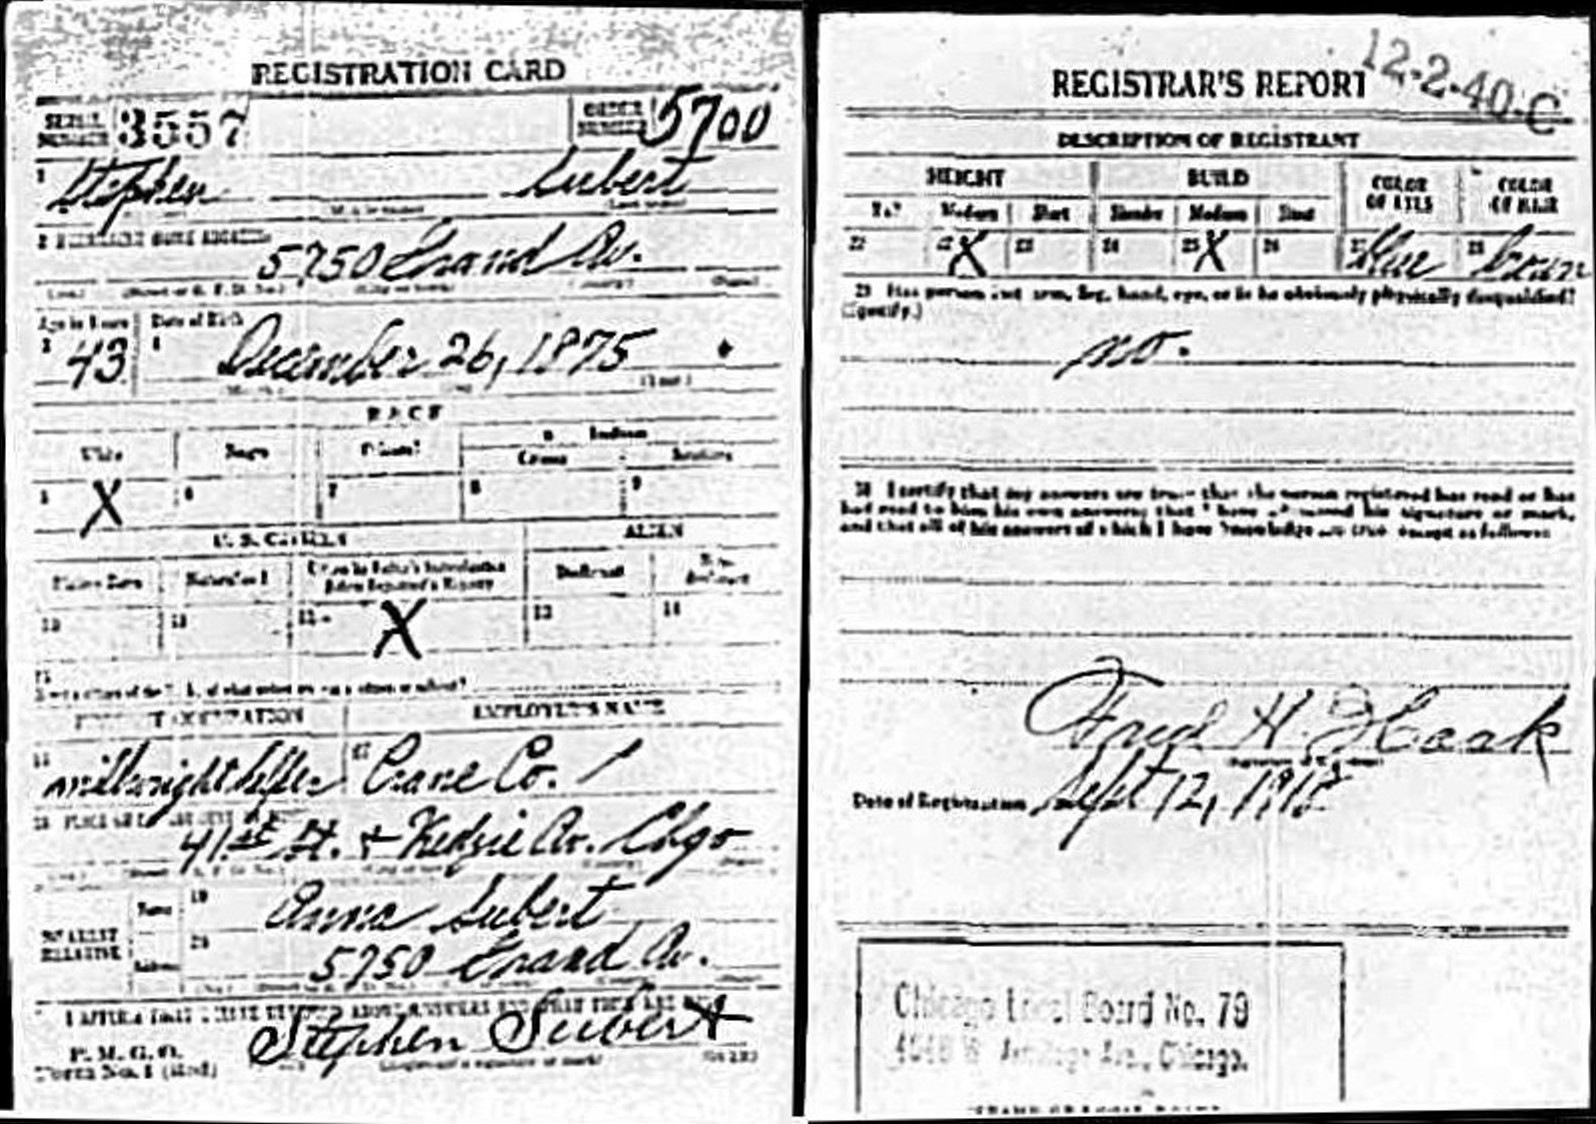 REGISTRATION CARD
SERIAL NUMBER 3557 ORDER NUMBER 5700
1 Stephen Subert
(Last name)
2 PERMANENT HOME ADDRESS:
5750 Grand Av.
Age in Years Date of Birth
3 43 4 December 26, 1875
(Year)
RACE
White Negro Oriental Indian
Citizen
5 X 6 7 8 9
U. S. CITIZEN ALIEN
Native Born Naturalized Citizen by Father's Naturalization Before Registrant's Majority Declarant Non-declarant
10 11 12 X 13 14
15
PRESENT OCCUPATION EMPLOYER'S NAME
16 millwright helper 17 Crane Co.
18 41st St. + Kedzie Av. Chgo
NEAREST RELATIVE
Name 19 Anna Subert
Address 20 5750 Grand Av.
I AFFIRM THAT I HAVE VERIFIED ABOVE ANSWERS AND THAT THEY ARE TRUE
Stephen Subert
P. M. G. O.
Form No. 1 (Red)
REGISTRAR'S REPORT
12-2-40-C
DESCRIPTION OF REGISTRANT
HEIGHT BUILD COLOR OF EYES COLOR OF HAIR
Tall Medium Short Slender Medium Stout
22 X 23 24 25 X 26 27 Blue 28 Brown
29 Has person lost arm, leg, hand, eye, or is he obviously physically disqualified?
(Specify.)
no.
30 I certify that my answers are true; that the person registered has read or has
had read to him his own answers; that I have witnessed his signature or mark,
and that all of his answers of which I have knowledge are true, except as follows:
Fred H. Haak
Date of Registration Sept 12, 1918
Chicago Local Board No. 79
4048 W Armitage Ave., Chicago.